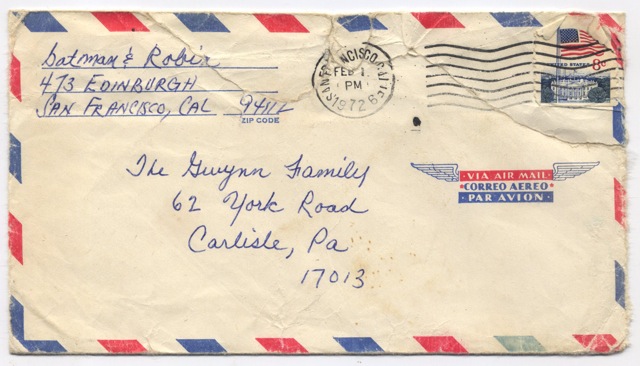 Batman & Robin
473 EDINBURGH
SAN FRANCISCO, CAL 94112
ZIP CODE
SAN FRANCISCO, CALIF
FEB 1
PM
1972
UNITED STATES 8c
VIA AIR MAIL
CORREO AEREO
PAR AVION
The Gwynn Family
62 York Road
Carlisle, Pa
17013